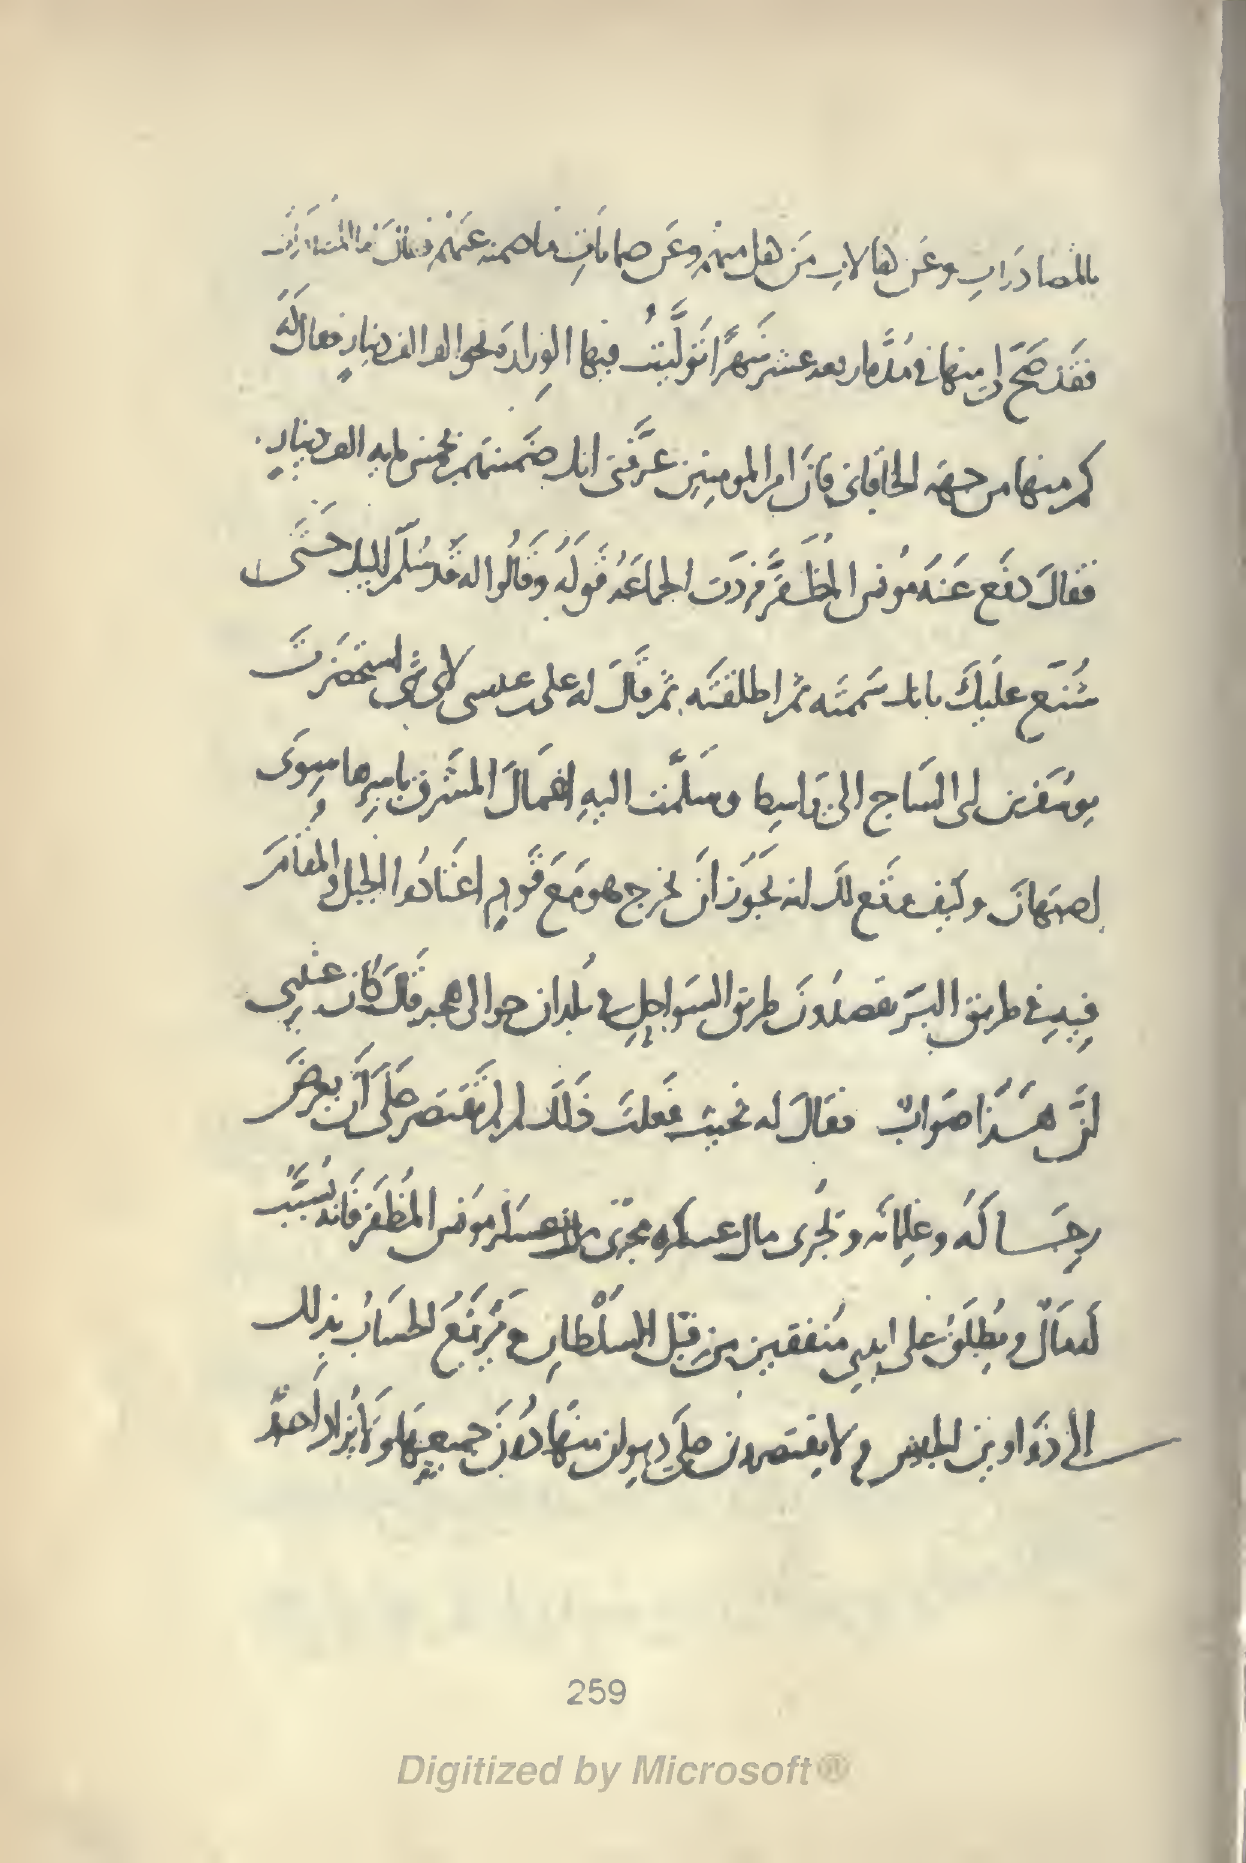 بالمصادرات وعن من هلك منهم وعن ضمانات ما ضمنه عنهم فقال اما المصادرات
فقد صح لي منها في مدة بعد عشر شهرا توليت فيها الوزارة نحو الف الف دينار فقال له
كم منها من جهة الخاقاني فان امير المومنين عرفني انك ضمنتهم بخمس مايه الف دينار
فقال دفع عنه مونس المظفر فردت الجماعة قوله وقالوا له قد سلم اليك حتى
شنع عليك بانك سممته ثم اطلقته ثم قال له على بن عيسى لاي شى استحضرت
يوسف بن ابي الساج الى واسط وسلمت اليه اعمال المشرق باسرها سوى
اصبهان وكيف وقع لك انه يجوز ان يخرج هو مع قوم اعتادوا الجبل والمقام
فيه في طريق البر يقصدون طريق السواحل في بلدان حوالى هجر قال كان عندي
ان هذا صواب فقال له فحيث فعلت ذلك لم لم تقتصر على ان يعرض
رجاله وغلمانه وتجري مال عسكره مجرى مال عسكر مونس المظفر فانه يسبب
له مال ويطلق على ايدي منفقين من قبل السلطان ويرتفع الحساب بذلك
الى دواوين الجيش ولا يقتصرون على ديوان منها دون جميعها ولا يزاد احد
259
Digitized by Microsoft®